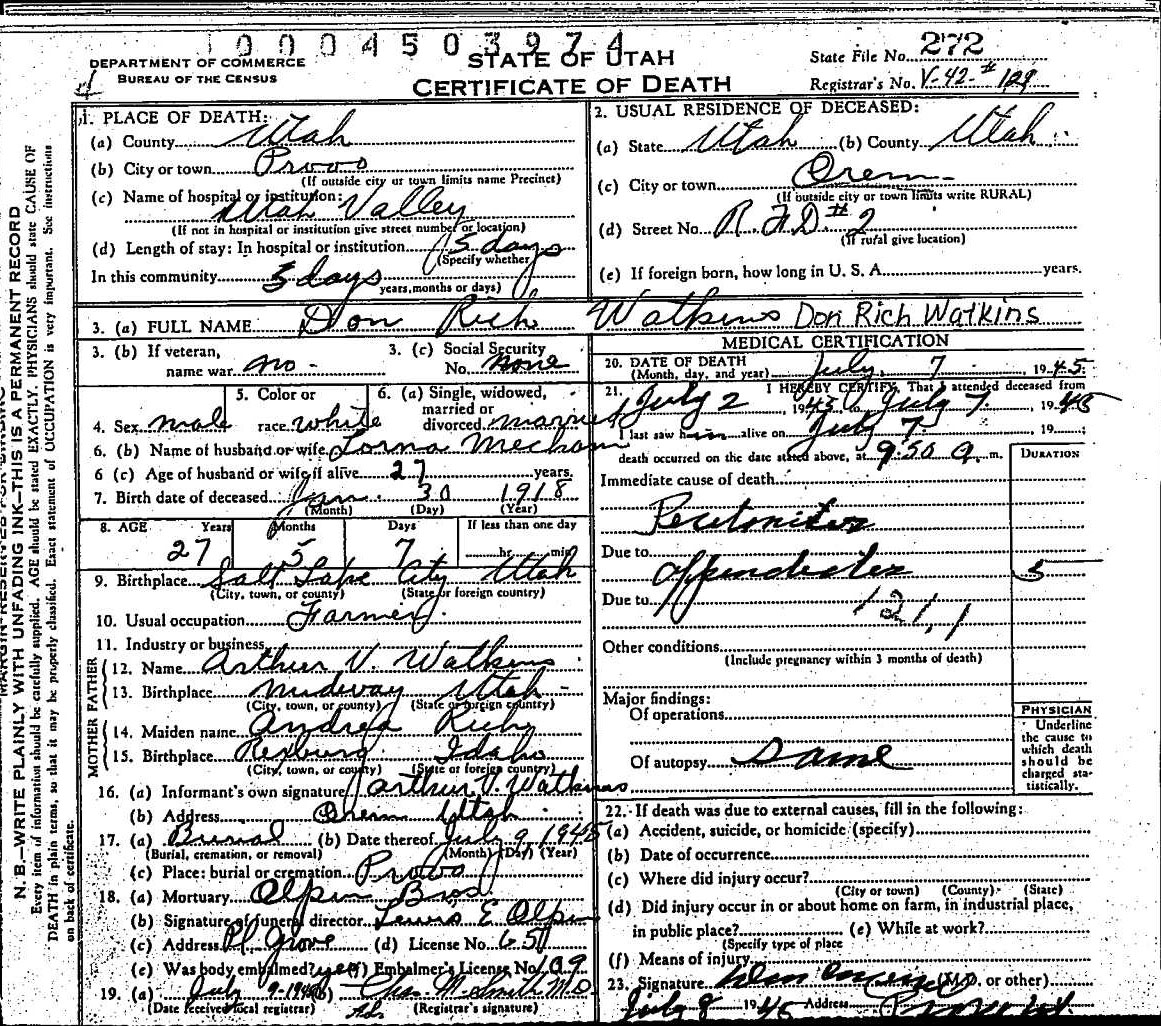 0004503974
DEPARTMENT OF COMMERCE
BUREAU OF THE CENSUS
STATE OF UTAH
CERTIFICATE OF DEATH
State File No. 272
Registrar's No. V-42-# 129
1. PLACE OF DEATH:
(a) County Utah
(b) City or town Provo
(If outside city or town limits name Precinct)
(c) Name of hospital or institution:
Utah Valley
(If not in hospital or institution give street number or location)
(d) Length of stay: In hospital or institution 5 days
(Specify whether
In this community days
years, months or days)
2. USUAL RESIDENCE OF DECEASED:
(a) State Utah (b) County Utah
(c) City or town Orem
(If outside city or town limits write RURAL)
(d) Street No. R.F.D # 2
(If rural give location)
(e) If foreign born, how long in U. S. A. years.
3. (a) FULL NAME Don Rich Watkins Don Rich Watkins
3. (b) If veteran,
name war no
3. (c) Social Security
No. None
4. Sex male
5. Color or
race white
6. (a) Single, widowed,
married or
divorced married
6. (b) Name of husband or wife Lorna Mecham
6 (c) Age of husband or wife if alive 27 years.
7. Birth date of deceased Jan. 30 1918
(Month) (Day) (Year)
8. AGE Years Months Days If less than one day
27 5 7 hr. min.
9. Birthplace Salt Lake City Utah
(City, town, or county) (State or foreign country)
10. Usual occupation Farmer
11. Industry or business
FATHER
12. Name Arthur V. Watkins
13. Birthplace Midway Utah
(City, town, or county) (State or foreign country)
MOTHER
14. Maiden name Andrea Rich
15. Birthplace Rexburg Idaho
(City, town, or county) (State or foreign country)
16. (a) Informant's own signature Arthur V. Watkins
(b) Address Orem Utah
17. (a) Burial (b) Date thereof July 9, 1945
(Burial, cremation, or removal) (Month) (Day) (Year)
(c) Place: burial or cremation Provo
18. (a) Mortuary Olpin Bros.
(b) Signature of funeral director Lewis E Olpin
(c) Address Pl. Grove (d) License No.
(e) Was body embalmed? yes (f) Embalmer's License No. 109
19. (a) July 9-1945 (b) Chas. M. Smith M.D.
(Date received local registrar) (Registrar's signature)
MEDICAL CERTIFICATION
20. DATE OF DEATH
(Month, day, and year) July 7 1945
21. I HEREBY CERTIFY, That I attended deceased from
July 2, 1945 to July 7, 1945
I last saw him alive on July 7, 19 ;
death occurred on the date stated above, at 9:50 a. m.
DURATION
Immediate cause of death
Peritonitis
Due to
Appendicitis 5
Due to 121,1
Other conditions
(Include pregnancy within 3 months of death)
Major findings:
Of operations
Of autopsy Same
PHYSICIAN
Underline
the cause to
which death
should be
charged sta-
tistically.
22. If death was due to external causes, fill in the following:
(a) Accident, suicide, or homicide (specify)
(b) Date of occurrence
(c) Where did injury occur?
(City or town) (County) (State)
(d) Did injury occur in or about home on farm, in industrial place,
in public place? (e) While at work?
(Specify type of place
(f) Means of injury
23. Signature (M.D. or other)
July 8 1945 Address Provo Ut.
N. B.—WRITE PLAINLY WITH UNFADING INK—THIS IS A PERMANENT RECORD
Every item of information should be carefully supplied. AGE should be stated EXACTLY. PHYSICIANS should state CAUSE OF
DEATH in plain terms, so that it may be properly classified. Exact statement of OCCUPATION is very important. See instructions
on back of certificate.